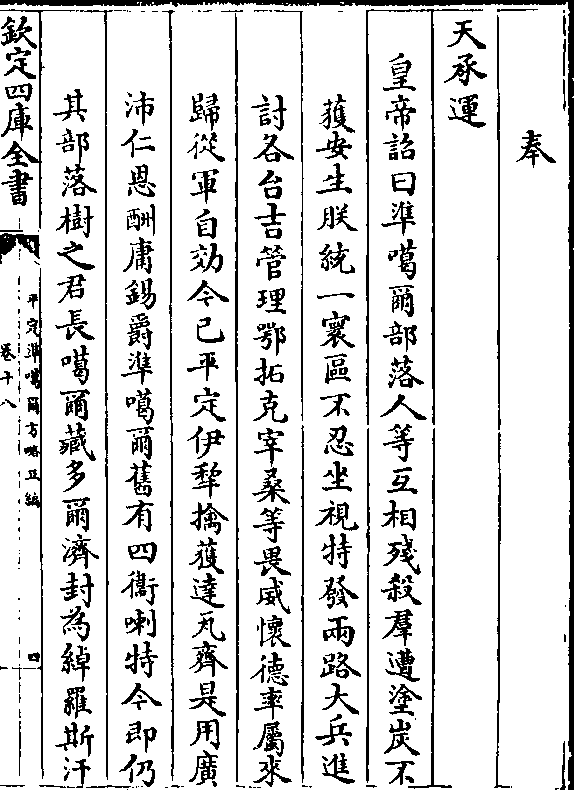 奉
天承運
皇帝詔曰準噶爾部落人等互相殘殺羣遭塗炭不
獲安生朕統一寰區不忍坐視特發兩路大兵進
討各台吉管理鄂拓克宰桑等畏威懷德率屬來
歸從軍自効今已平定伊犂擒獲達瓦齊是用廣
沛仁恩酬庸錫爵準噶爾舊有四衛喇特今即仍
其部落樹之君長噶爾藏多爾濟封為綽羅斯汗
欽定四庫全書
平定準噶爾方略正編
卷十八
四